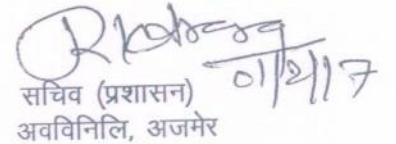 01/2/17
सचिव (प्रशासन)
अवविनिलि, अजमेर